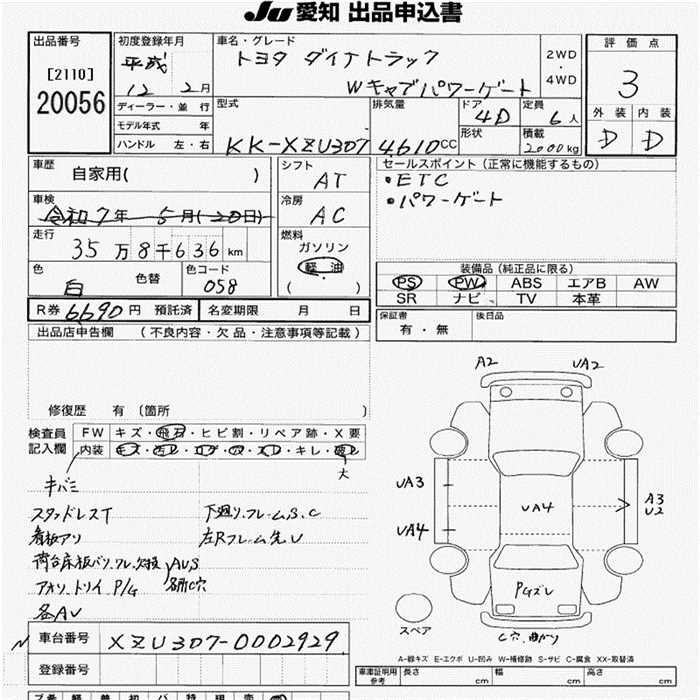 JU 愛知 出品申込書
出品番号
[2110]
20056
初度登録年月
平成
12年 2月
ディーラー・並行
モデル年式 年
ハンドル 左・右
車名・グレード
トヨタ ダイナトラック
Wキャブパワーゲート
2WD
・
4WD
評価点
3
外装 内装
D D
型式
KK-XZU307
排気量
4610CC
ドア
4D
形状
定員
6人
積載
2000kg
車歴
自家用( )
車検
令和7年 5月(20日)
走行
35万8千636km
色
白
色替
色コード
058
シフト
AT
冷房
AC
燃料
ガソリン
軽油
( )
セールスポイント(正常に機能するもの)
・ETC
・パワーゲート
装備品(純正品に限る)
PS PW ABS エアB AW
SR ナビ TV 本革
R券 6690円 預託済 名変期限 月 日
保証書
有・無
後日品
出品店申告欄 (不良内容・欠品・注意事項等記載)
修復歴 有 〔箇所 〕
検査員
記入欄
FW キズ・飛石・ヒビ割・リペア跡・X要
内装 キズ・汚レ・コゲ・穴・スレ・キレ・破レ
大
キバミ
スタッドレスT
看板アリ
荷台床板バリ、ワレ、欠損
アオリ、トリイ P/G
AUS
各所C穴
各AU
下廻り、フレームS、C
左Rフレーム先U
A2
UA2
UA3
UA4
UA4
A3
U2
PGズレ
C穴、曲がり
スペア
A-線キズ E-エクボ U-凹み W-補修跡 S-サビ C-腐食 XX-取替済
車台番号
XZU307-0002929
登録番号
車庫証明用
参考
長さ cm
幅 cm
高さ cm